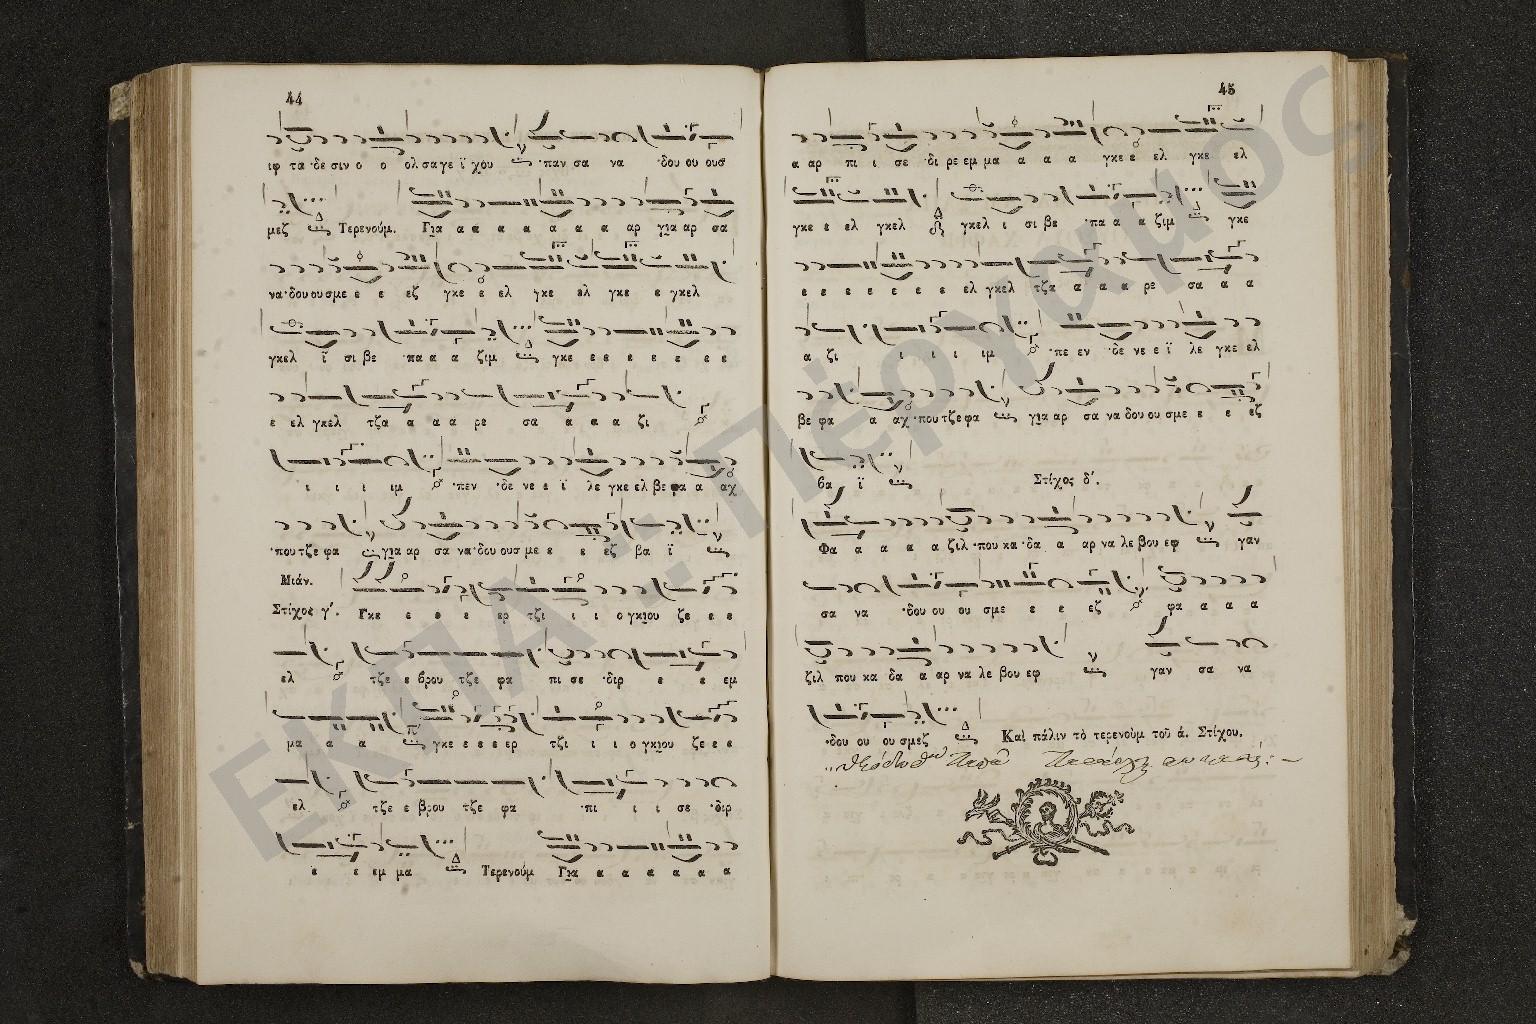 44
ιφ τα ·δε σιν ο ο ολ σα γε ϊ χου ·παν σα να ·δου ου ους
μεζ Τερενούμ. Για α α α α α α α αρ για αρ σα
να ·δου ου σμε ε ε εζ γκε ε ελ γκε ελ γκε ε γκελ
γκελ ϊ σι βε ·πα α α ζιμ γκε ε ε ε ε ε ε ε
ε ελ γκελ τζα α α α ρε σα α α α ζι
ι ι ι ιμ ·πεν ·δε νε ε ϊ λε γκε ελ βε φα α αχ
·που τζε φα για αρ σα να ·δου ους με ε ε εζ βα ϊ
Μιάν.
Στίχος γ΄. Γκε ε ε ε ερ τζι ι ι ο γκιου ζε ε ε
ελ τζε ε βρου τζε φα πι σε ·διρ ε ε εμ
μα α α γκε ε ε ε ερ τζι ι ι ο γκιου ζε ε ε
ελ τζε ε βρου τζε φα ·πι ι ι σε ·διρ
ε ε εμ μα Τερενούμ Για α α α α α α
45
α αρ πι ι σε ·δι ρε εμ μα α α α γκε ε ελ γκε ελ
γκε ε ελ γκελ γκελ ι σι βε ·πα α α ζιμ γκε
ε ε ε ε ε ε ε ελ γκελ τζα α α α ρε σα α α
α ζι ι ι ι ιμ ·πε εν ·δε νε ε ϊ λε γκε ελ
βε φα α αχ ·που τζε φα για αρ σα να δου ου σμε ε ε εζ
βα ϊ Στίχος δ΄.
Φα α α α α ζιλ ·που κα ·δα α αρ να λε βου εφ γαν
σα να ·δου ου ου σμε ε ε εζ φα α α α
ζιλ που κα δα α αρ να λε βου εφ γαν σα να
·δου ου ου σμεζ Καὶ πάλιν τὸ τερενοὺμ τοῦ ά. Στίχου.
ΕΚΠΑ :: Πέργαμος